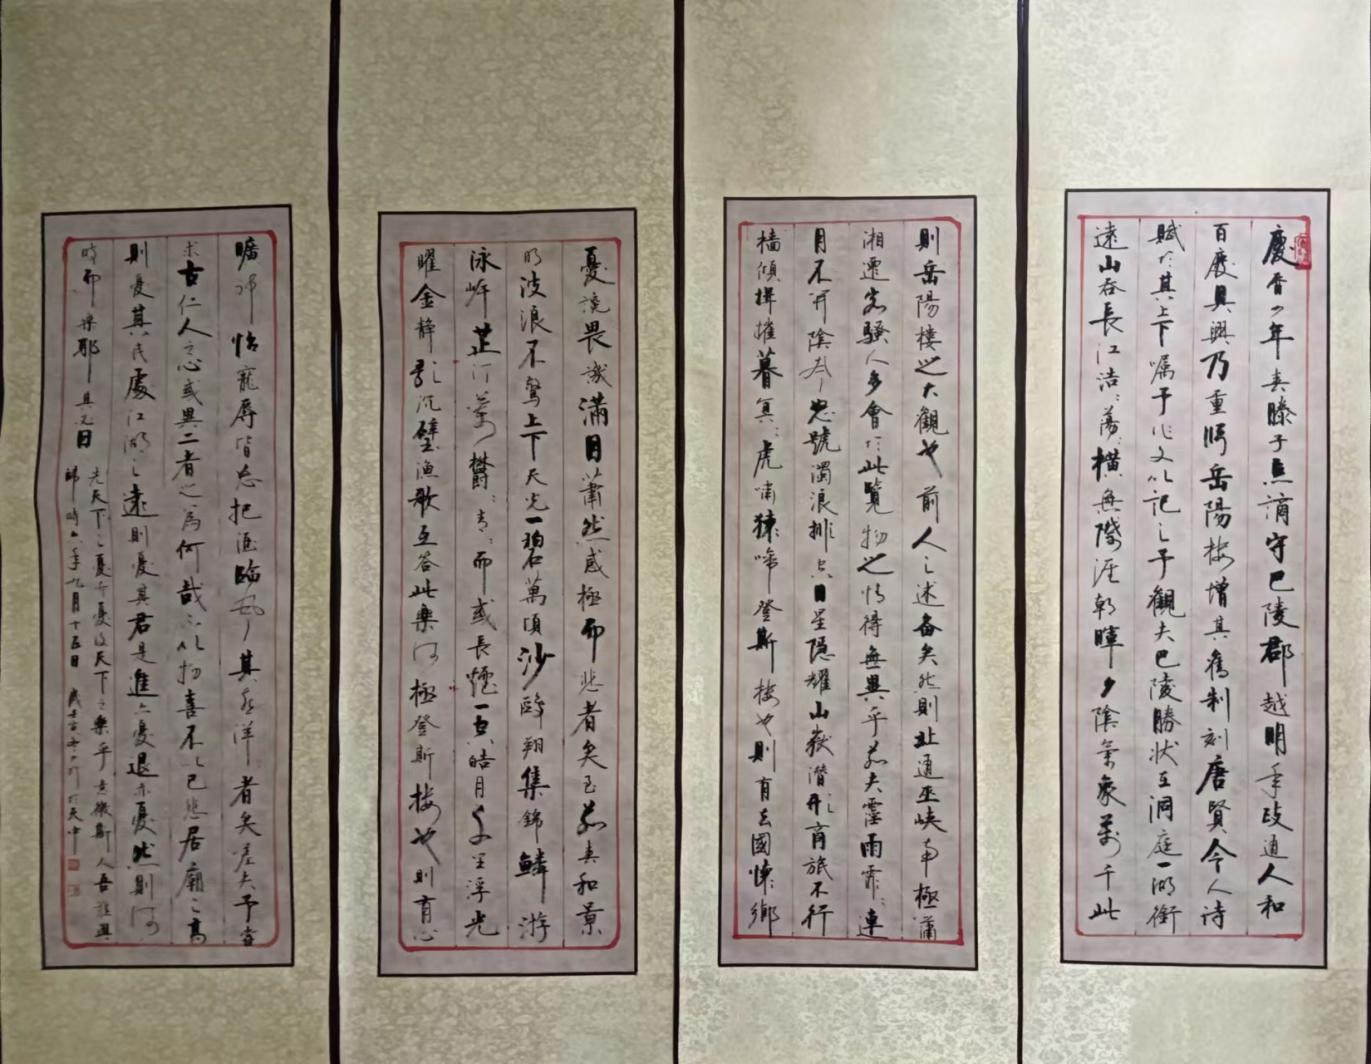 慶曆四年春滕子京謫守巴陵郡越明年政通人和
百廢具興乃重脩岳陽樓增其舊制刻唐賢今人詩
賦於其上下囑予作文以記之予觀夫巴陵勝狀在洞庭一湖銜
遠山吞長江浩〻蕩〻橫無際涯朝暉夕陰氣象萬千此
則岳陽樓之大觀也前人之述备矣然則北通巫峽南極瀟
湘遷客騷人多會於此覽物之情得無異乎若夫霪雨霏〻連
月不開陰風怒號濁浪排空日星隱耀山嶽潛形商旅不行
檣傾楫摧暮冥〻虎嘯猿啼登斯樓也則有去國懷鄉
憂讒畏譏滿目蕭然感極而悲者矣至若春和景
明波浪不驚上下天光一碧萬頃沙鷗翔集錦鱗游
泳岸芷汀蘭鬱〻青〻而或長煙一空皓月千里浮光
曜金靜影沉璧漁歌互答此樂何極登斯樓也則有心
曠神怡寵辱皆忘把酒臨風其喜洋〻者矣嗟夫予嘗
求古仁人之心或異二者之為何哉不以物喜不以己悲居廟之高
則憂其民處江湖之遠則憂其君是進亦憂退亦憂然則何
時而樂耶其必曰
先天下之憂而憂後天下之樂乎意微斯人吾誰與
歸時六年九月十五日 於天中